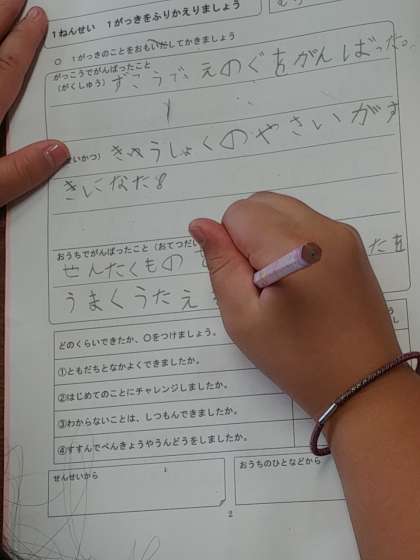 1ねんせい 1がっきをふりかえりましょう
○ 1がっきのことをおもいだしてかきましょう
がっこうでがんばったこと
(がくしゅう) ずこうで、えのぐをがんばった。
せいかつ) きゅうしょくのやさいがす
きになた
おうちでがんばったこと(おてつだい
せんたくもの
たを
うまくうたえ
どのくらいできたか、○をつけましょう。
①ともだちとなかよくできましたか。
②はじめてのことにチャレンジしましたか。
③わからないことは、しつもんできましたか。
④すすんでべんきょうやうんどうをしましたか。
せんせいから
おうちのひとなどから
2